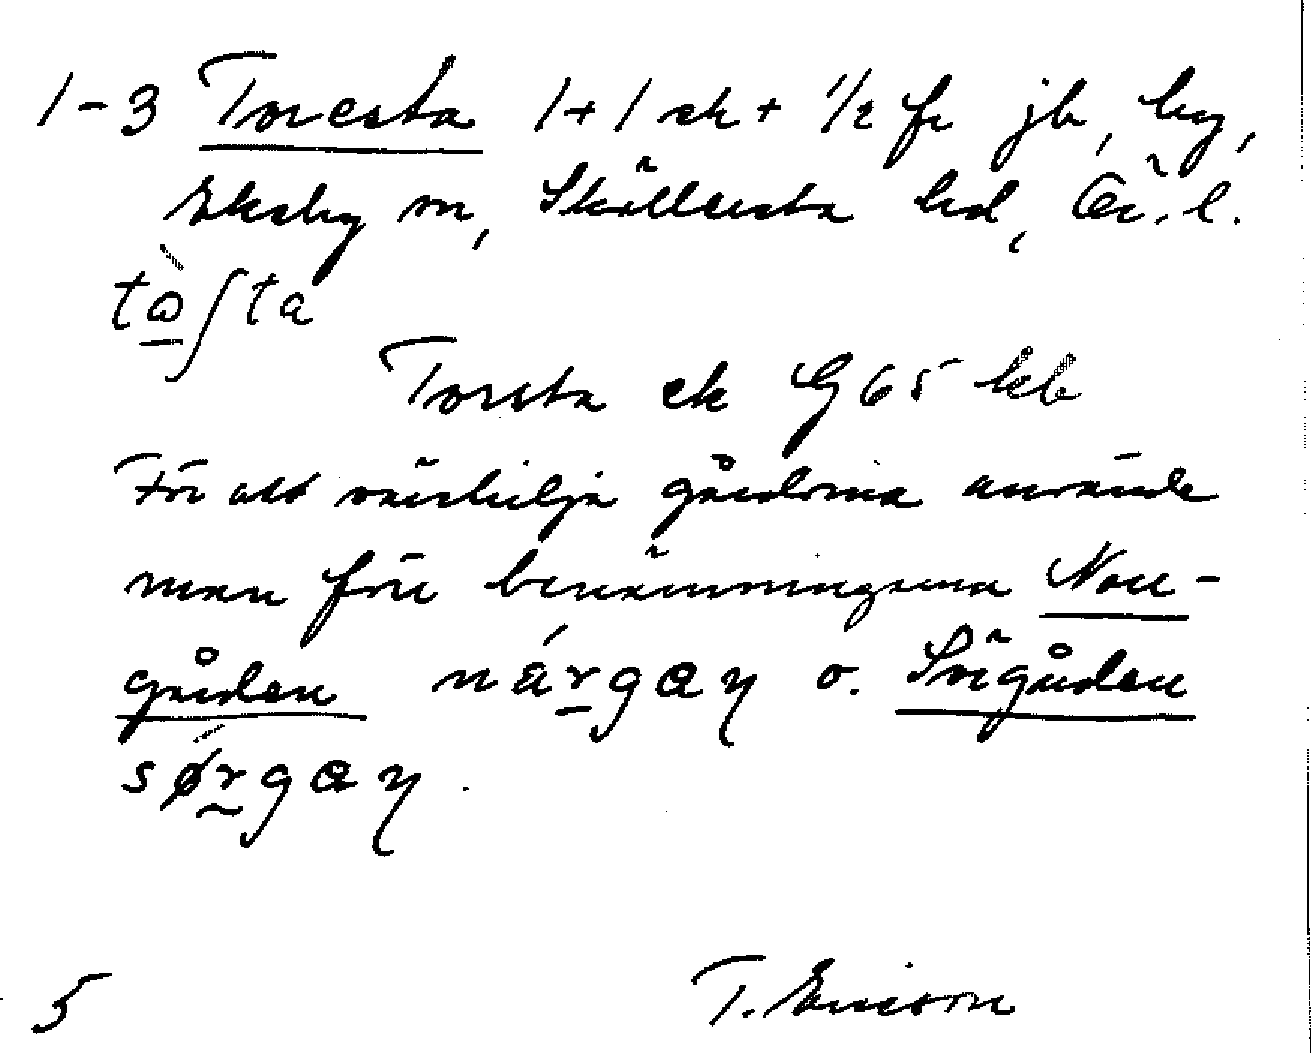 1-3 Toresta 1+1 sk+ 1/2 fr jb, by,
Ekeby sn, Sköllersta hd, Ör. l.
tὰ̱ʃta
Torsta ek G 65 kb
För att särskilja gårdarna använde
man förr benämningarna Norr-
gården nárgaɳ o. Sörgården
sǿrgaɳ.
5 T. Ericson